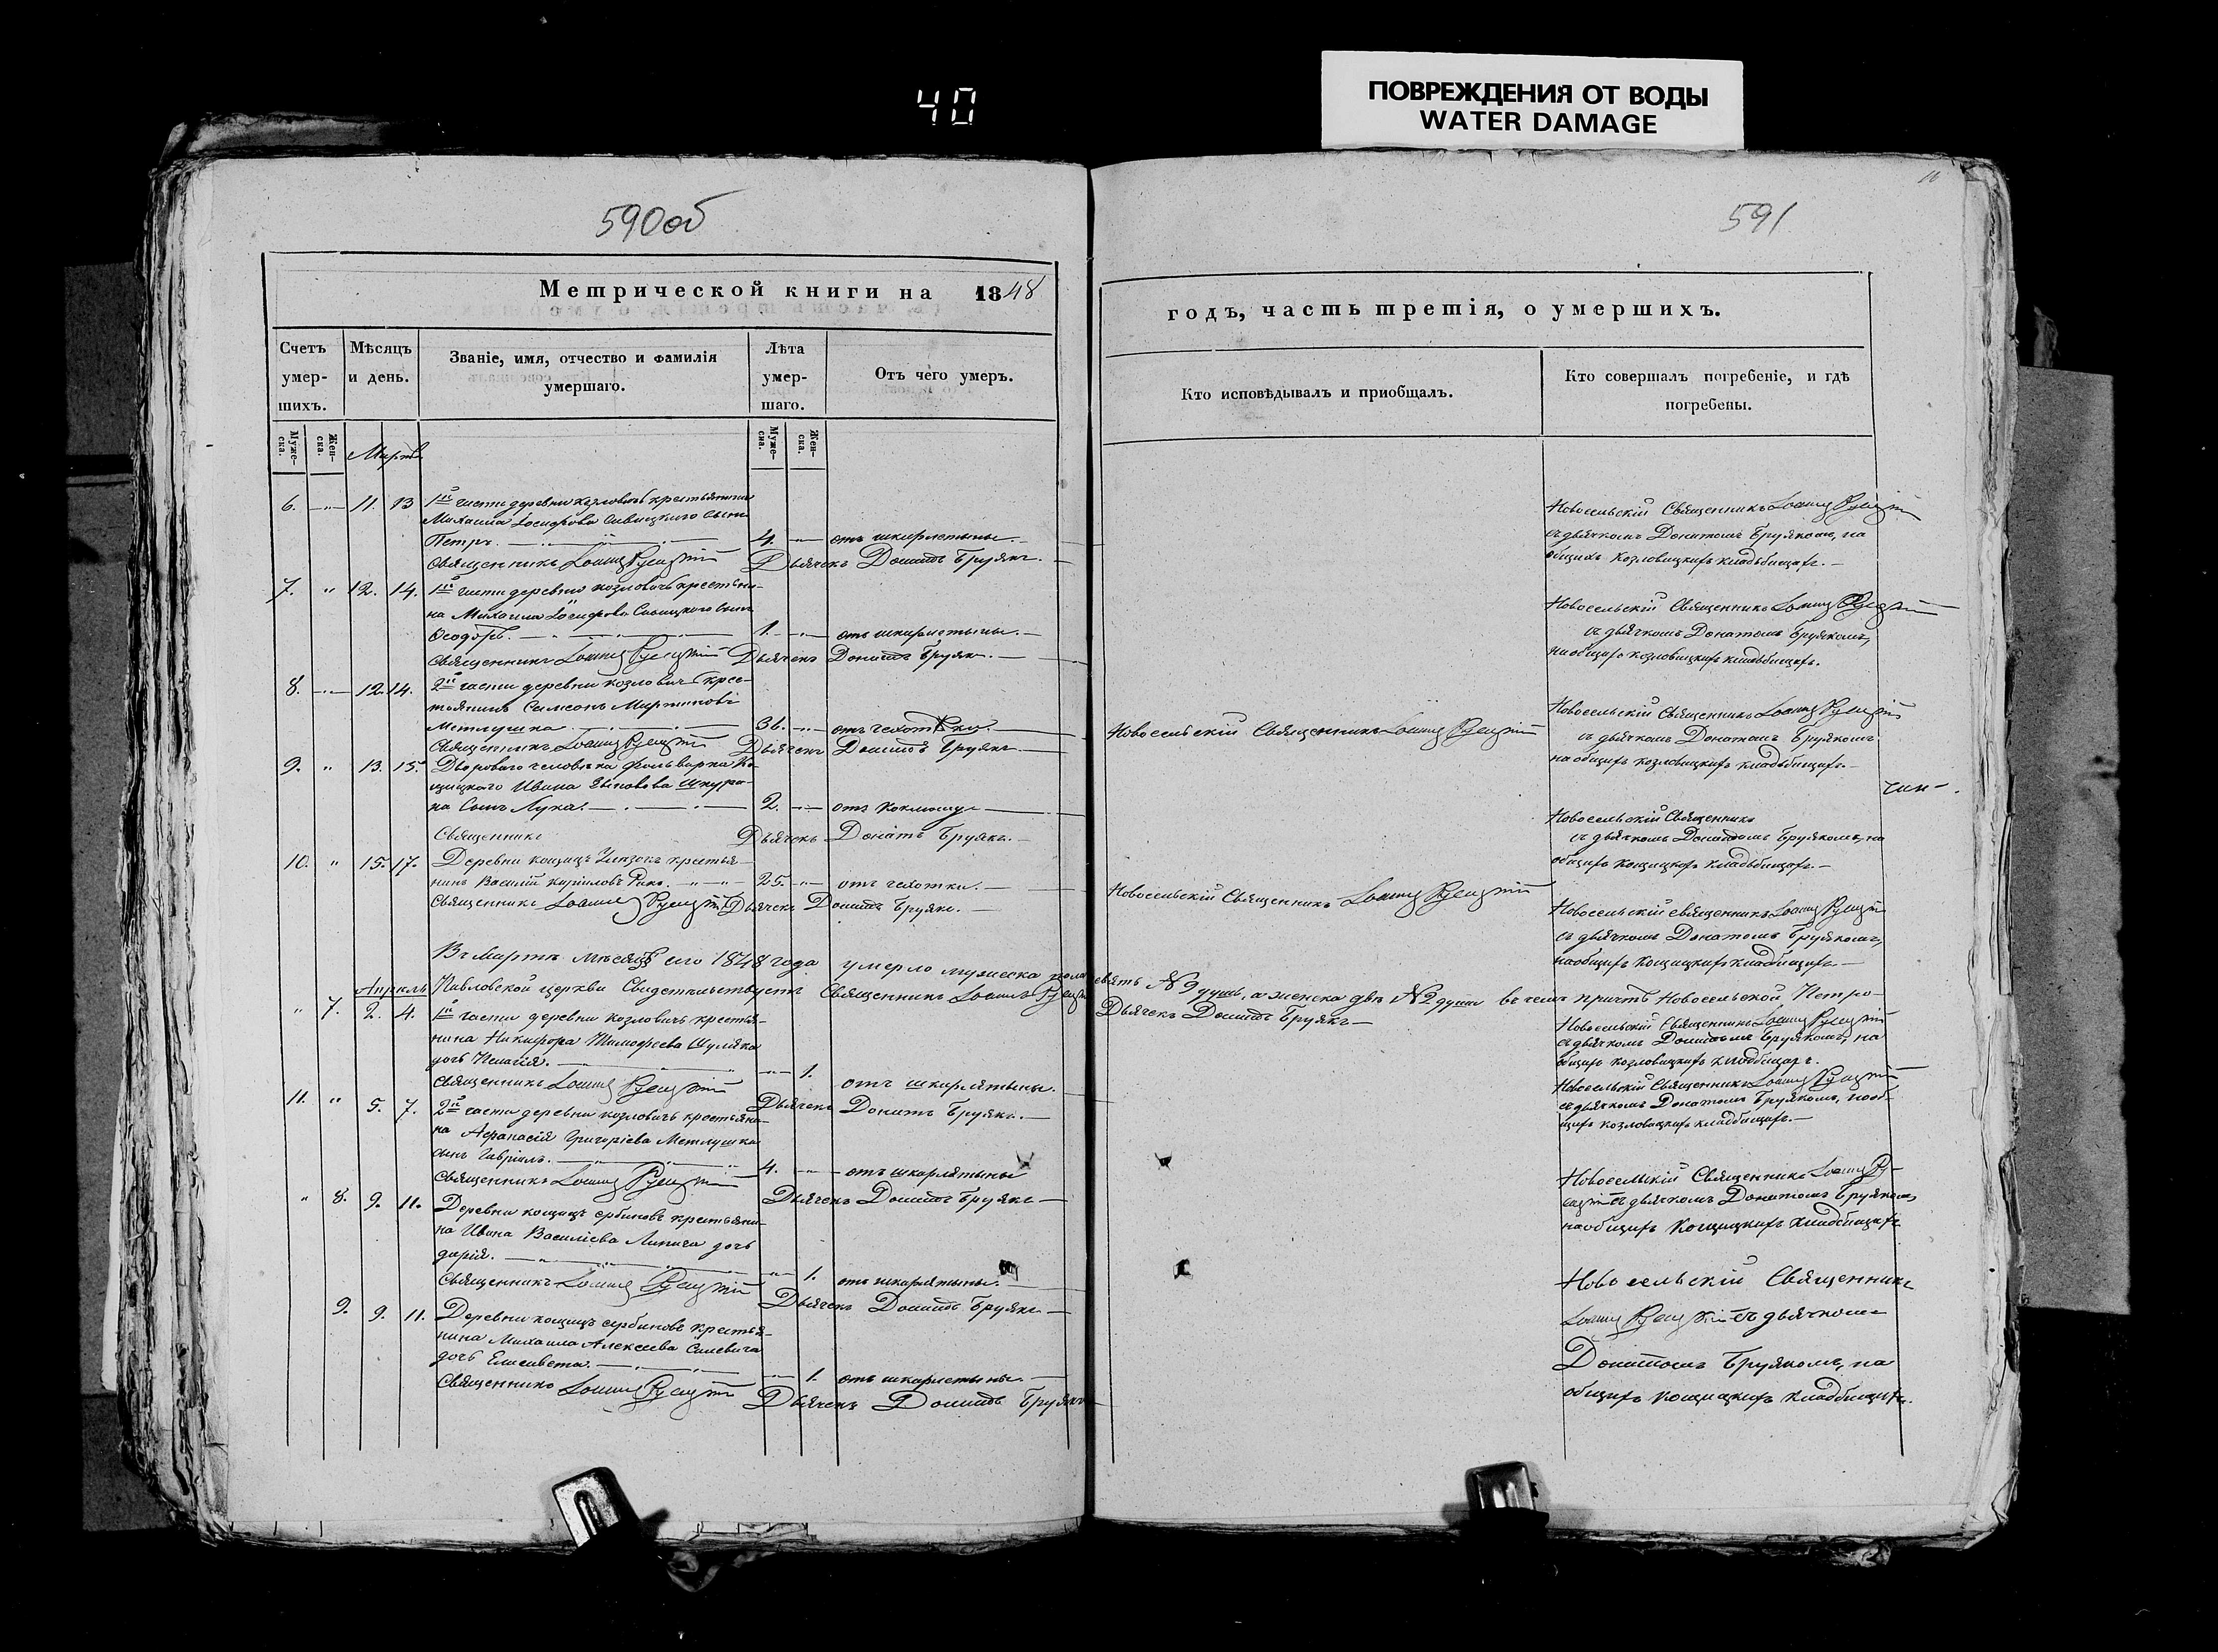 40
ПОВРЕЖДЕНИЯ ОТ ВОДЫ
WATER DAMAGE
590об
Метрической книги на 1848
Счетъ умер-шихъ.
Мѣсяцъ и день.
Званіе, имя, отчество и фамилія умершаго.
Лѣта умер-шаго.
Отъ чего умеръ.
Муже-ска.
Жен-ска.
Муже-ска.
Жен-ска.
Мартъ
6. " 11. 13 1й части деревни Козловичъ крестьянина
Михаила Іосифова Савицкого сынъ
Петръ. 4. отъ шкарлятыны.
Священникъ Іоаннъ Дьячекъ Донатъ Бруякъ.
7. " 12. 14. 1й части деревни Козловичъ крестьяни-
на Михаила Іосифова Савицкого сынъ
Ѳеодоръ. 1. отъ шкарлятыны.
Священникъ Іоаннъ Дьячекъ Донатъ Бруякъ.
8. " 12. 14. 2й части деревни Козловичъ крес-
тьянинъ Симеонъ Мартиновъ
Метлушка 36. отъ чахотки.
Священникъ Іоаннъ Дьячекъ Донатъ Бруякъ
9. " 13. 15. Двороваго человѣка фольварка Ко-
щицкаго Ивана
на сынъ Лука. 2. отъ коклюшу
Священникъ Дьячекъ Донатъ Бруякъ.
10. " 15. 17. Деревни Кощицъ крестья-
нинъ Василій Кириловъ 25. отъ чахотки.
Священникъ Іоаннъ Дьячекъ Донатъ Бруякъ.
Въ Мартѣ мѣсяцѣ сего 1848 года умерло мужеска пола
Павловской церкви Свидетельствуетъ Священникъ Іоаннъ
Апрель
" 7. 2. 4. 1й части деревни Козловичъ крестья-
нина Никифора Тимофеева Шуляка
дочь Пелагія. 1. отъ шкарлятыны.
Священникъ Іоаннъ Дьячекъ Донатъ Бруякъ.
11. " 5. 7. 2й части деревни Козловичъ крестьяни-
на Афанасія Григоріева Метлушка
сынъ Гавріилъ. 4. отъ шкарлятыны
Священникъ Іоаннъ Дьячекъ Донатъ Бруякъ
" 8. 9. 11. Деревни Кощицъ Сербиновъ крестьяни-
на Ивана Василіева дочь
Дарія. 1. отъ шкарлятыны.
Священникъ Іоаннъ Дьячекъ Донатъ Бруякъ
9. 9. 11. Деревни Кощицъ Сербиновъ крестья-
нина Михаила Алексіева
дочь Елисавета. 1. отъ шкарлятыны.
Священникъ Іоаннъ Дьячекъ Донатъ Бруякъ
591
годъ, часть третія, о умершихъ.
Кто исповѣдывалъ и пріобщалъ.
Кто совершалъ погребеніе, и гдѣ погребены.
Новосельскій Священникъ Іоаннъ
съ дьячкомъ Донатомъ Бруякомъ, на
общихъ Козловицкихъ кладбищахъ.
Новосельскій Священникъ Іоаннъ
съ дьячкомъ Донатомъ Бруякомъ,
на общихъ Козловицкихъ кладбищахъ.
Новосельскій Священникъ Іоаннъ
Новосельскій Священникъ Іоаннъ
съ дьячкомъ Донатомъ Бруякомъ
на общихъ Козловицкихъ кладбищахъ.
Новосельскій Священникъ
съ дьячкомъ Донатомъ Бруякомъ, на
общихъ Кощицкихъ кладбищахъ.
Новосельскій Священникъ Іоаннъ
Новосельскій священникъ Іоаннъ
съ дьячкомъ Донатомъ Бруякомъ,
на общихъ Кощицкихъ кладбищахъ
девять № 9 душъ, а женска двѣ № 2 души въ чемъ причтъ Новосельской Петро-
Дьячекъ Донатъ Бруякъ
Новосельскій Священникъ Іоаннъ
съ дьячкомъ Донатомъ Бруякомъ, на
общихъ Козловицкихъ кладбищахъ.
Новосельскій Священникъ Іоаннъ
съ дьячкомъ Донатомъ Бруякомъ, на об-
щихъ Козловицкихъ кладбищахъ.
Новосельскій Священникъ Іоаннъ
съ дьячкомъ Донатомъ Бруякомъ,
на общихъ Кощицкихъ кладбищахъ
Новосельскій Священникъ
Іоаннъ съ дьячкомъ
Донатомъ Бруякомъ, на
общихъ Кощицкихъ кладбищахъ.